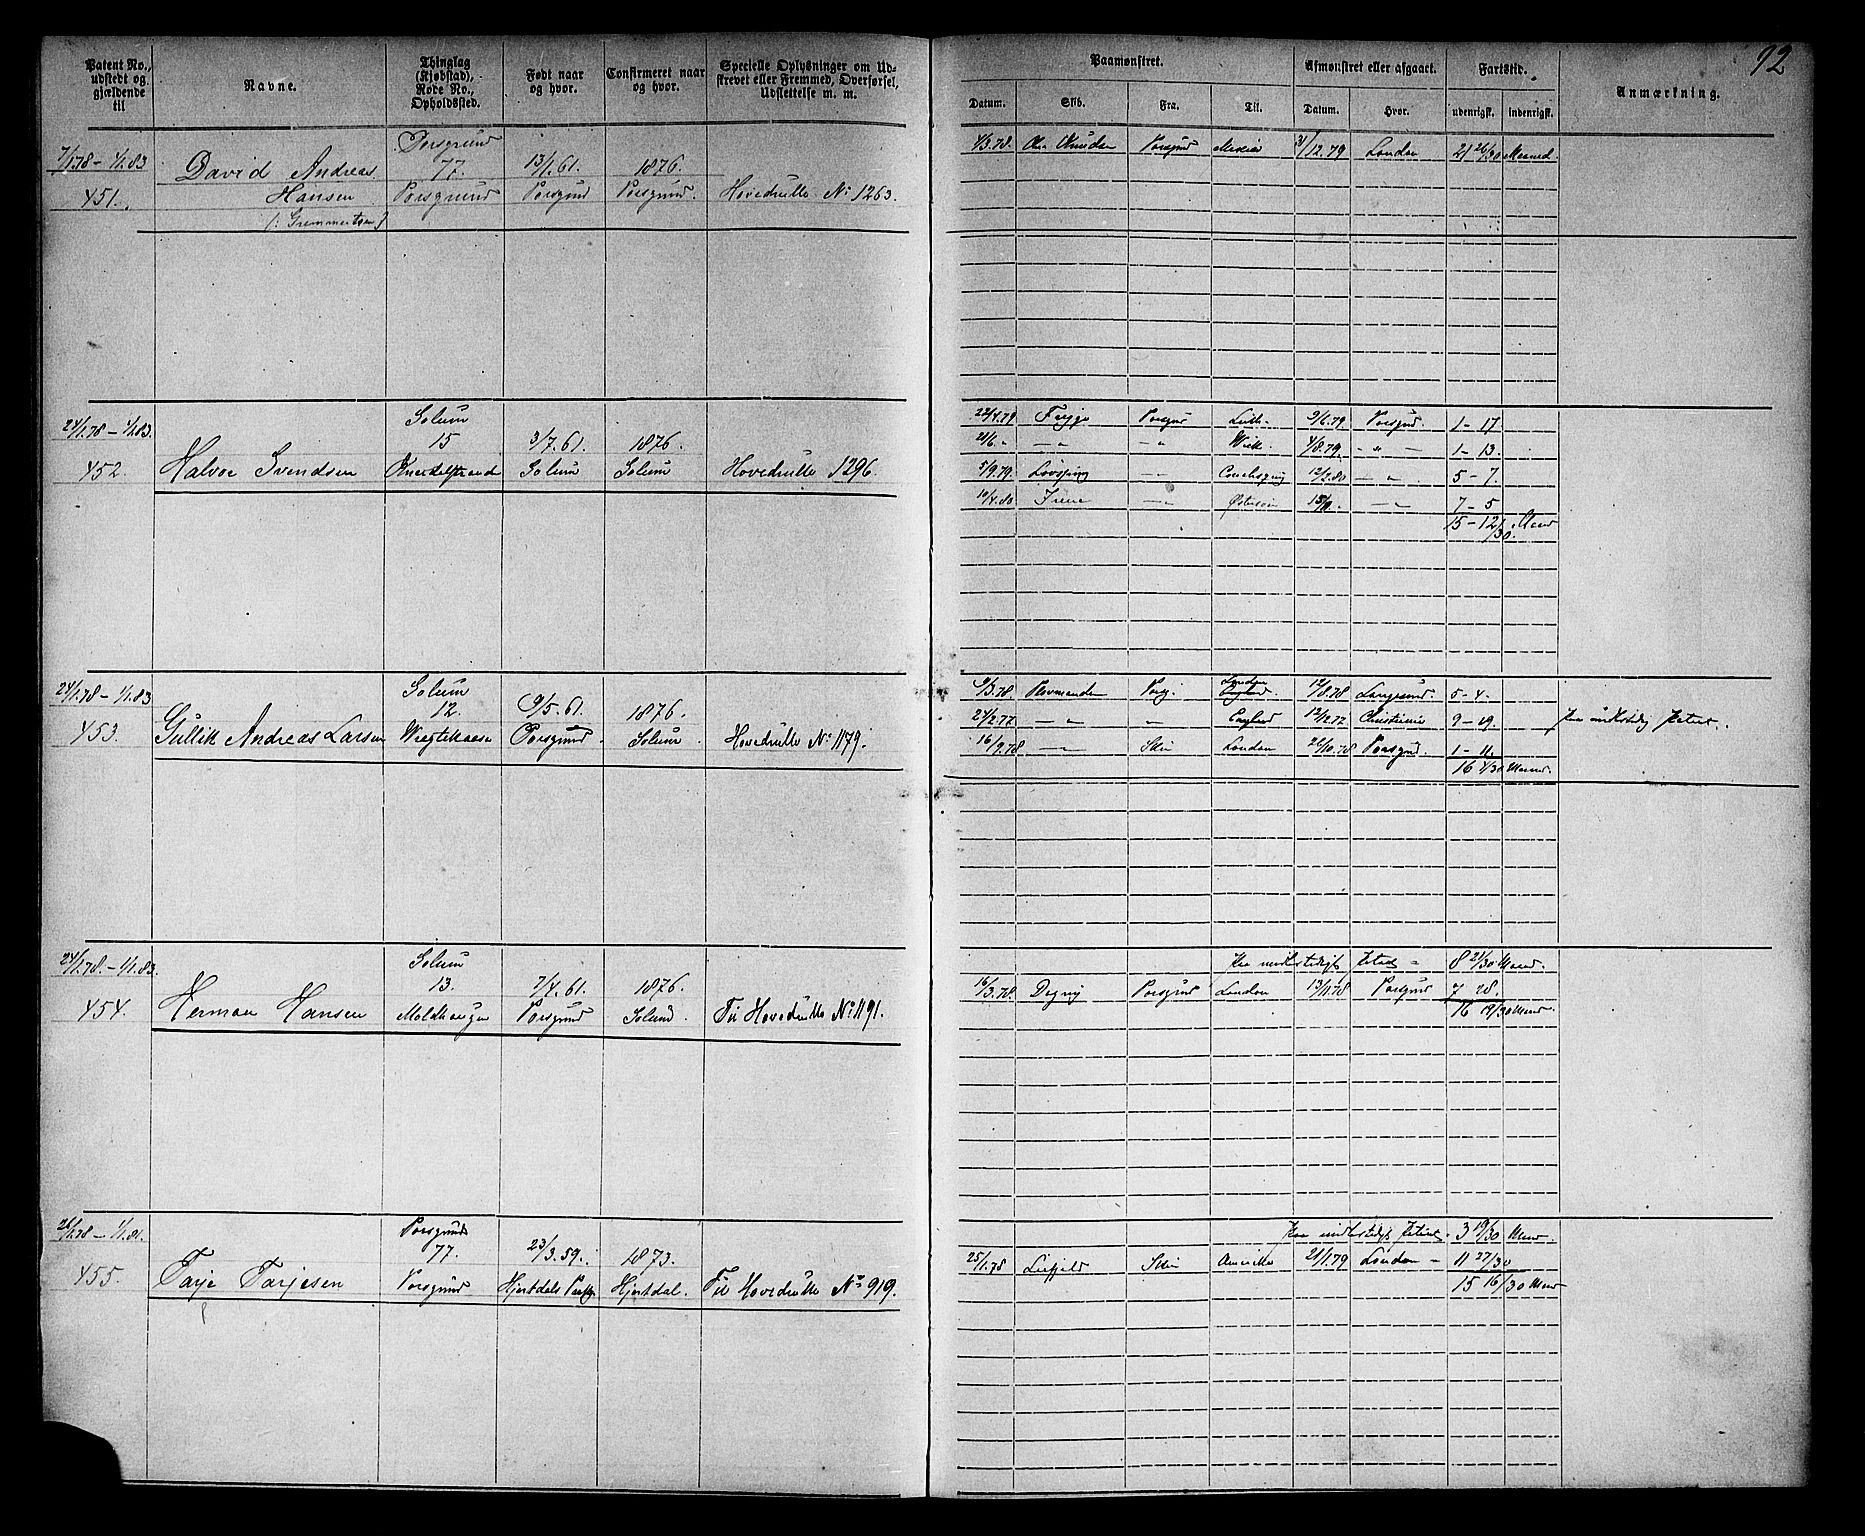 92
Patent No., udstedt og gjældende til
Navne.
Thinglag (Kjøbstad), Rode No., Opholdssted.
Født naar og hvor.
Confirmeret naar og hvor.
Specielle Oplysninger om Udskrevet eller Fremmed, Overførsel, Udslettelse m. m.
Paamønstret.
Afmønstret eller afgaaet.
Fartstid.
Anmærkning.
Datum. Skib. Fra. Til. Datum. Hvor. udenrigsk. indenrigsk.
7/1.78 – 1/1.83
451.
David Andreas
Hansen
(: Gremmertsen)
Porsgrund
77.
Porsgrund
13/1.61.
Porsgrund
1876.
Porsgrund.
Hovedrulle No 1263.
4/3.78. Porsgrund Mexico 31/12.79 London 21 26/30 Maaned
24/1.78 – 1/1.83.
452.
Halvor Svendsen
Solum
15
3/7.61.
Solum
1876.
Solum
Hovedrulle 1296
22/4.79 Porsgrund Leith 9/6.79 Porsgrund. 1 – 17
21/6 " – " – " Wick 4/8.79. – " – 1 – 13.
5/9.79. – " – 12/2.80 – " – 5 – 7.
10/4.80. Irene – " – Østersøen 15/11. – " – 7 – 5
15 – 12/30. Maaned
24/1.78 – 1/1.83
453.
Gullik Andreas Larsen
Solum
12.
9/5.61.
Porsgrund.
1876.
Solum
Hovedrulle No 1179.
9/3.78. Pors. London England. 12/8.78 Langesund. 5 – 4.
24/2.77. – " – " England 12/12.77 Christiania 9 – 19.
16/9.78 – " – Skien London 26/10.78 Porsgrund. 1 – 11.
16 4/30 Maaned.
24/1.78. – 1/1.83.
454.
Herman Hansen
Solum
13.
Moldhaugen
7/4.61.
Porsgrund
1876.
Solum.
Til Hovedrulle No 1191.
8 21/30 Maaned.
16/3.78. Dagny Porsgrund London 13/11.78 Porsgrund 7 28.
16 19/30 Maaned.
26/1.78 – 1/1.81.
455.
Tarje Tarjesen
Porsgrund
77.
Porsgrund
23/3.59.
1873.
Hjertdal.
Til Hovedrulle No 919.
3 19/30 Maaned.
25/1.78 Skien Amerika 21/1.79 London – 11 27/30
15 16/30 Maaned